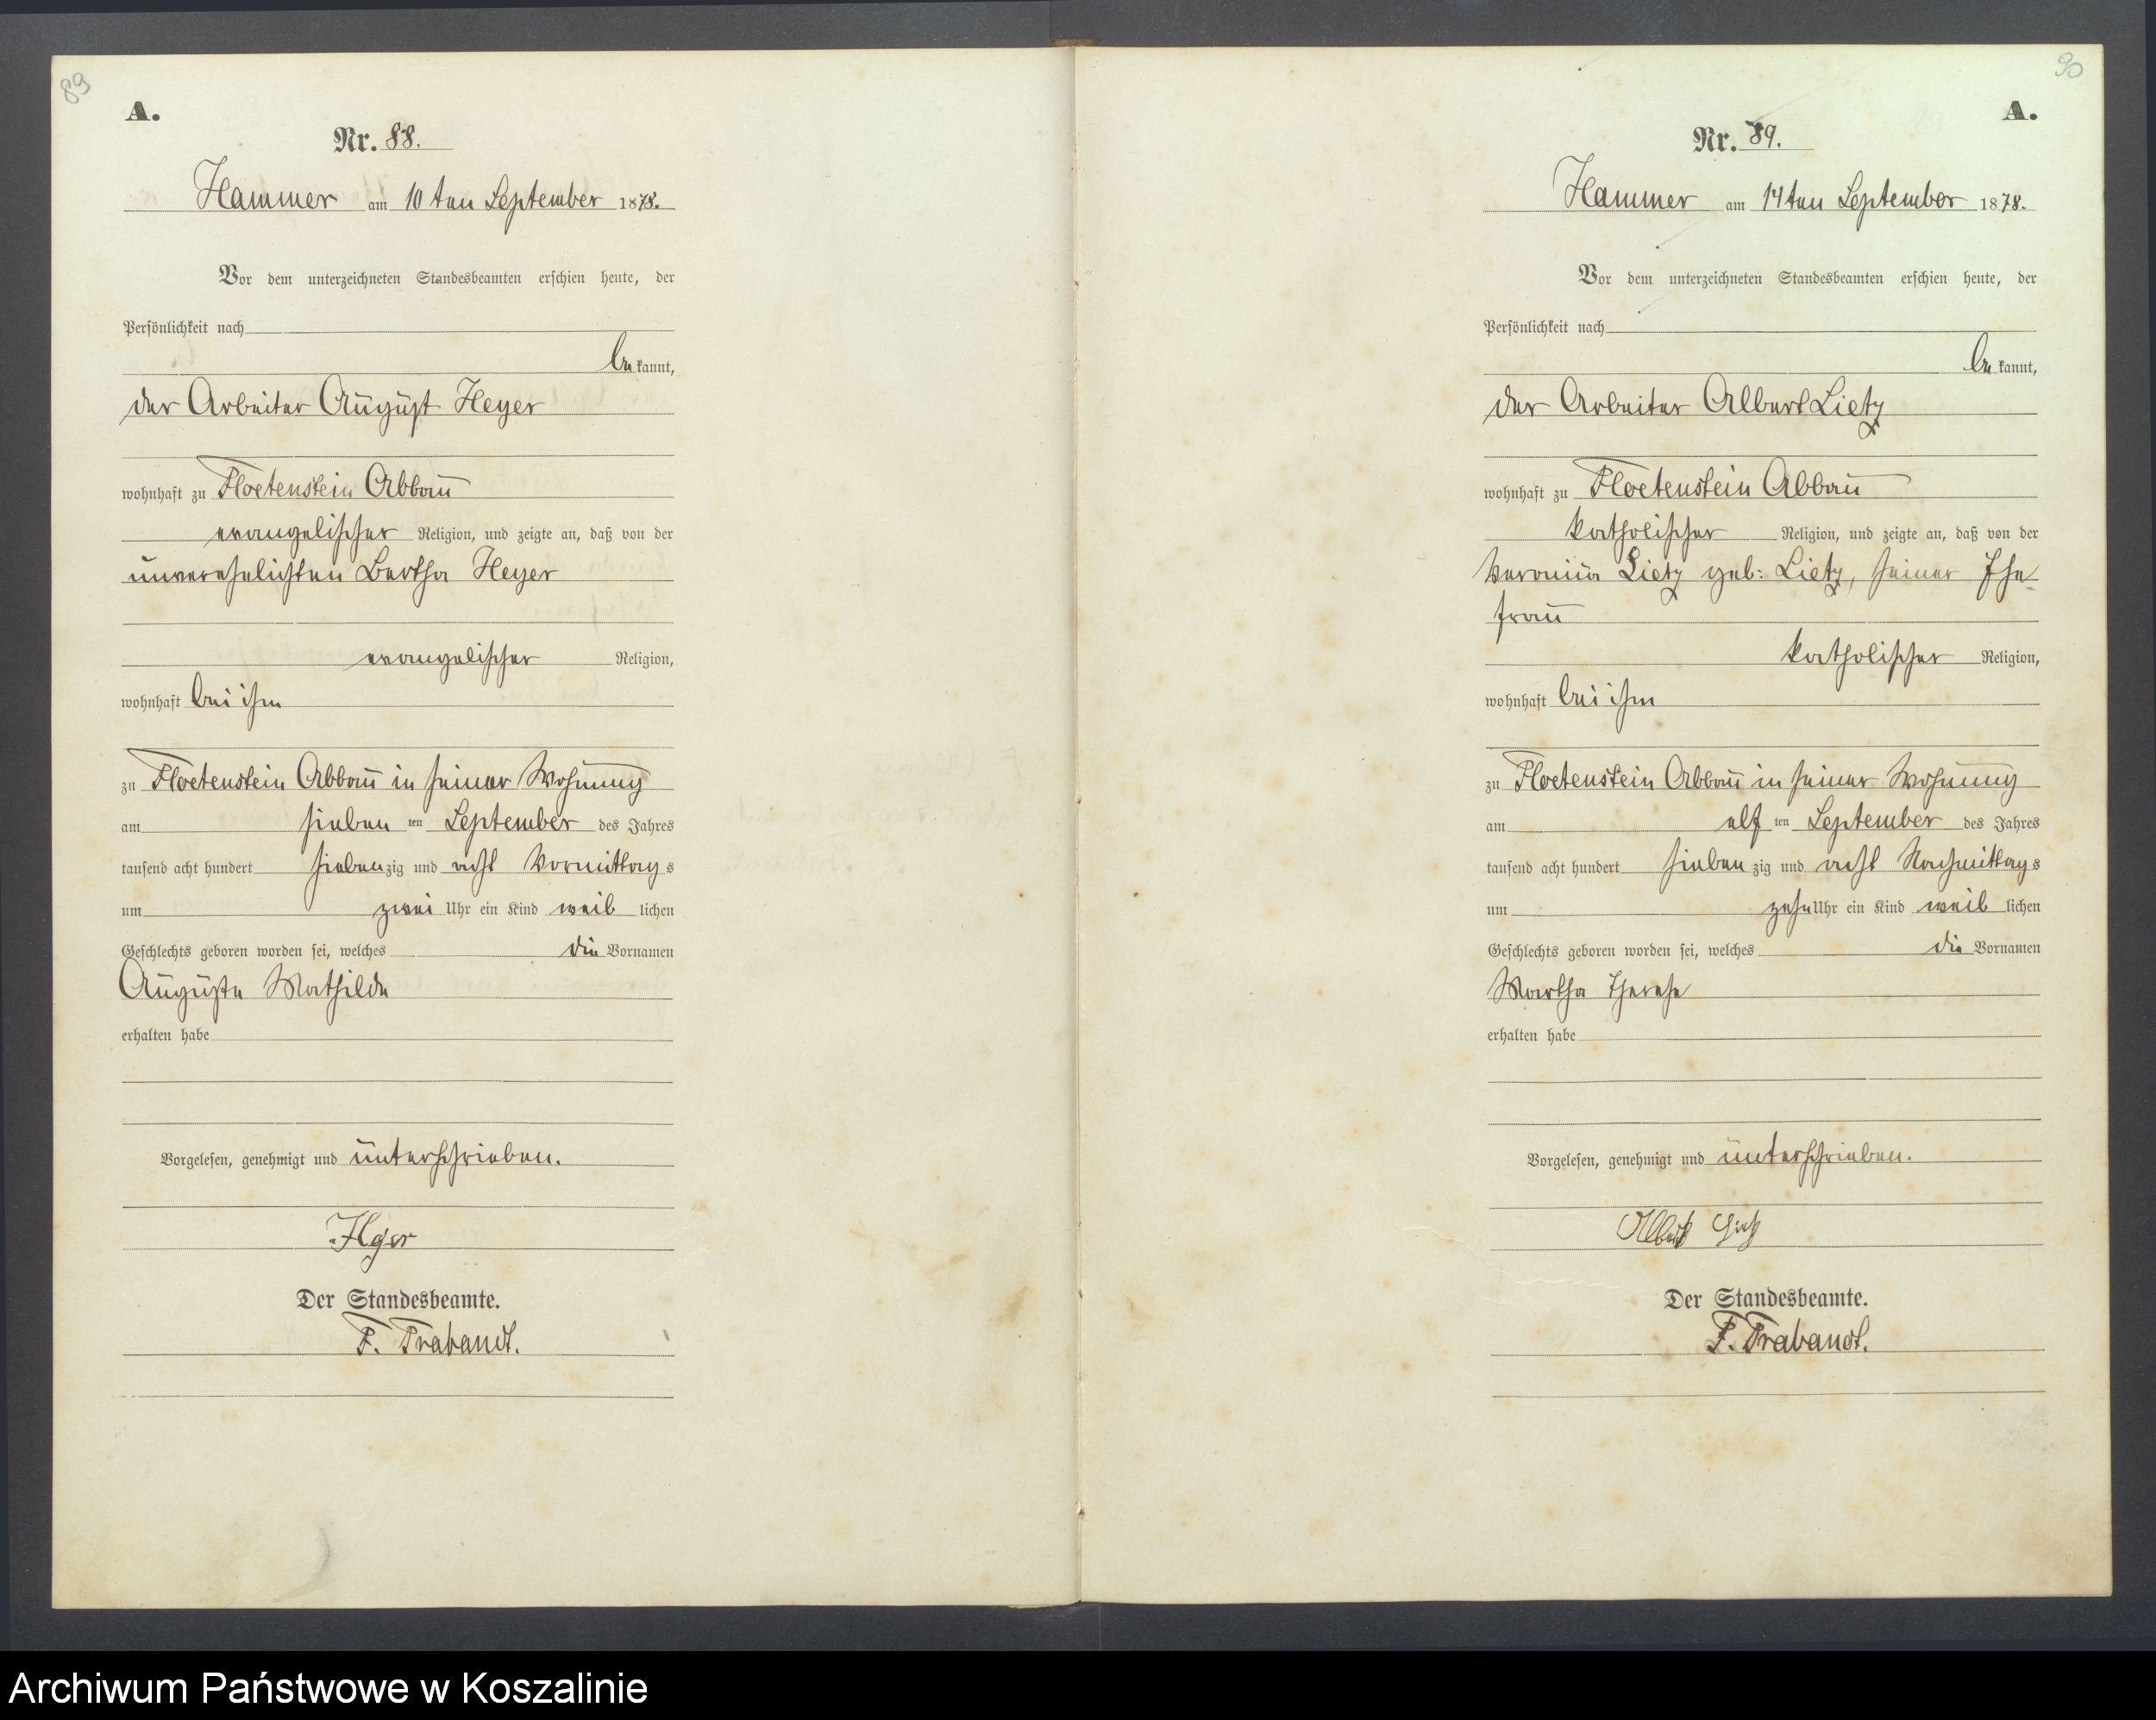 89
A.
Nr. 88.
Hammer am 10 ten September 1878.
Vor dem unterzeichneten Standesbeamten erschien heute, der
Persönlichkeit nach
bekannt,
der Arbeiter August Heyer
wohnhaft zu Floetenstein Abbau
evangelischer Religion, und zeigte an, daß von der
unverehelichten Bertha Heyer
evangelischer Religion,
wohnhaft bei ihm
zu Floetenstein Abbau in seiner Wohnung
am sieben ten September des Jahres
tausend acht hundert siebenzig und acht Vormittags
um zwei Uhr ein Kind weiblichen
Geschlechts geboren worden sei, welches die Vornamen
Auguste Mathilde
erhalten habe
Vorgelesen, genehmigt und unterschrieben.
Der Standesbeamte.
F. Trabandt.
90
A.
Nr. 89.
Hammer am 14 ten September 1878.
Vor dem unterzeichneten Standesbeamten erschien heute, der
Persönlichkeit nach
bekannt,
der Arbeiter Albert Lietz
wohnhaft zu Floetenstein Abbau
katholischer Religion, und zeigte an, daß von der
Lietz geb: Lietz, seiner Ehe-
frau
katholischer Religion,
wohnhaft bei ihm
zu Floetenstein Abbau in seiner Wohnung
am elf ten September des Jahres
tausend acht hundert siebenzig und acht Nachmittags
um zehn Uhr ein Kind weiblichen
Geschlechts geboren worden sei, welches die Vornamen
Martha Therese
erhalten habe
Vorgelesen, genehmigt und unterschrieben.
Albert Lietz
Der Standesbeamte.
F. Trabandt.
Archiwum Państwowe w Koszalinie